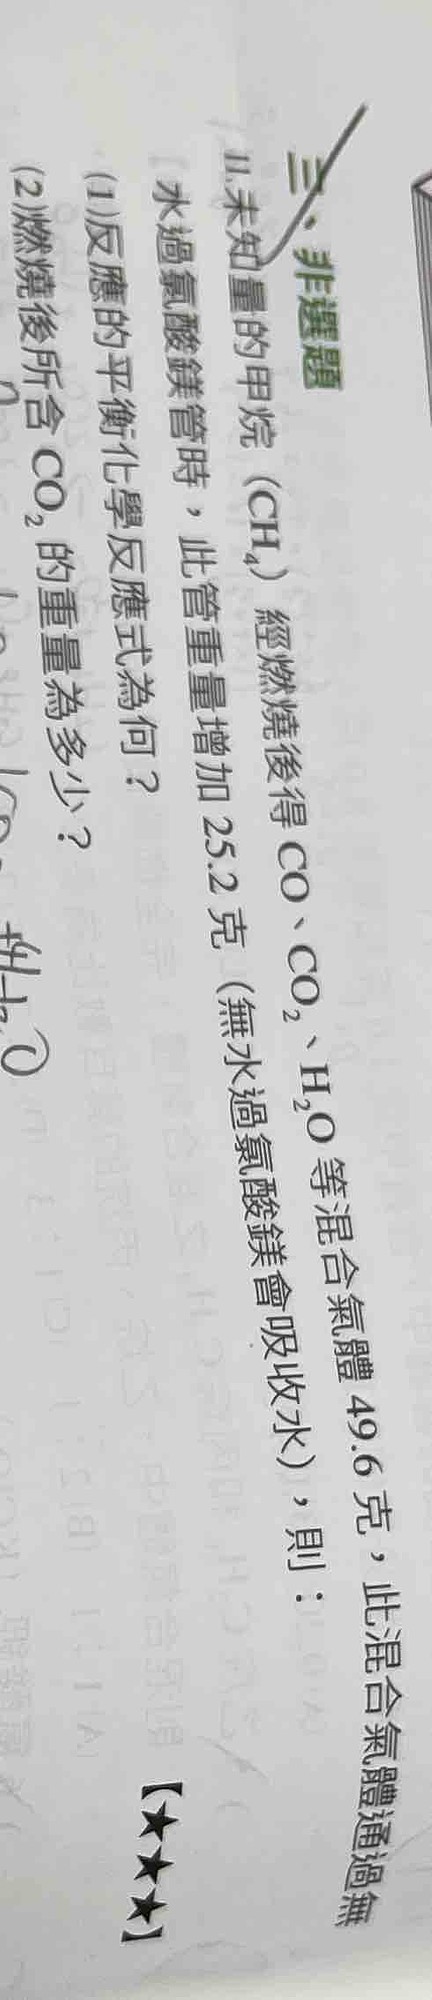 三、非選題
11.未知量的甲烷（CH₄）經燃燒後得 CO、CO₂、H₂O 等混合氣體 49.6 克，此混合氣體通過無
水過氯酸鎂管時，此管重量增加 25.2 克（無水過氯酸鎂會吸收水），則：
(1)反應的平衡化學反應式為何？
【★★★】
(2)燃燒後所含 CO₂ 的重量為多少？